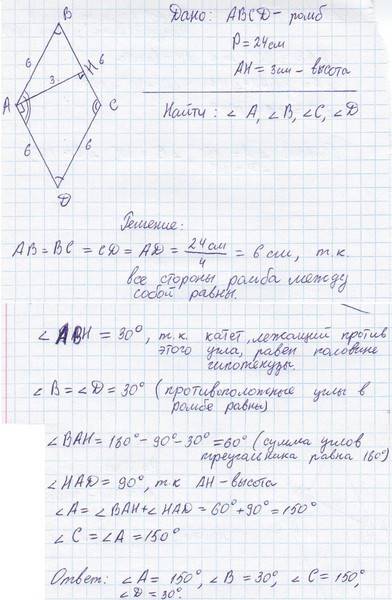 B
Дано: ABCD - ромб
P = 24 см
6
H
6
AH = 3 см - высота
3
A
C
Найти: ∠A, ∠B, ∠C, ∠D
6
6
D
Решение:
AB = BC = CD = AD = 24 см / 4 = 6 см, т.к.
все стороны ромба между
собой равны.
∠ABH = 30°, т.к. катет, лежащий против
этого угла, равен половине
гипотенузы.
∠B = ∠D = 30° (противоположные углы в
ромбе равны)
∠BAH = 180° - 90° - 30° = 60° (сумма углов
треугольника равна 180°)
∠HAD = 90°, т.к AH - высота
∠A = ∠BAH + ∠HAD = 60° + 90° = 150°
∠C = ∠A = 150°
Ответ: ∠A = 150°, ∠B = 30°, ∠C = 150°,
∠D = 30°.